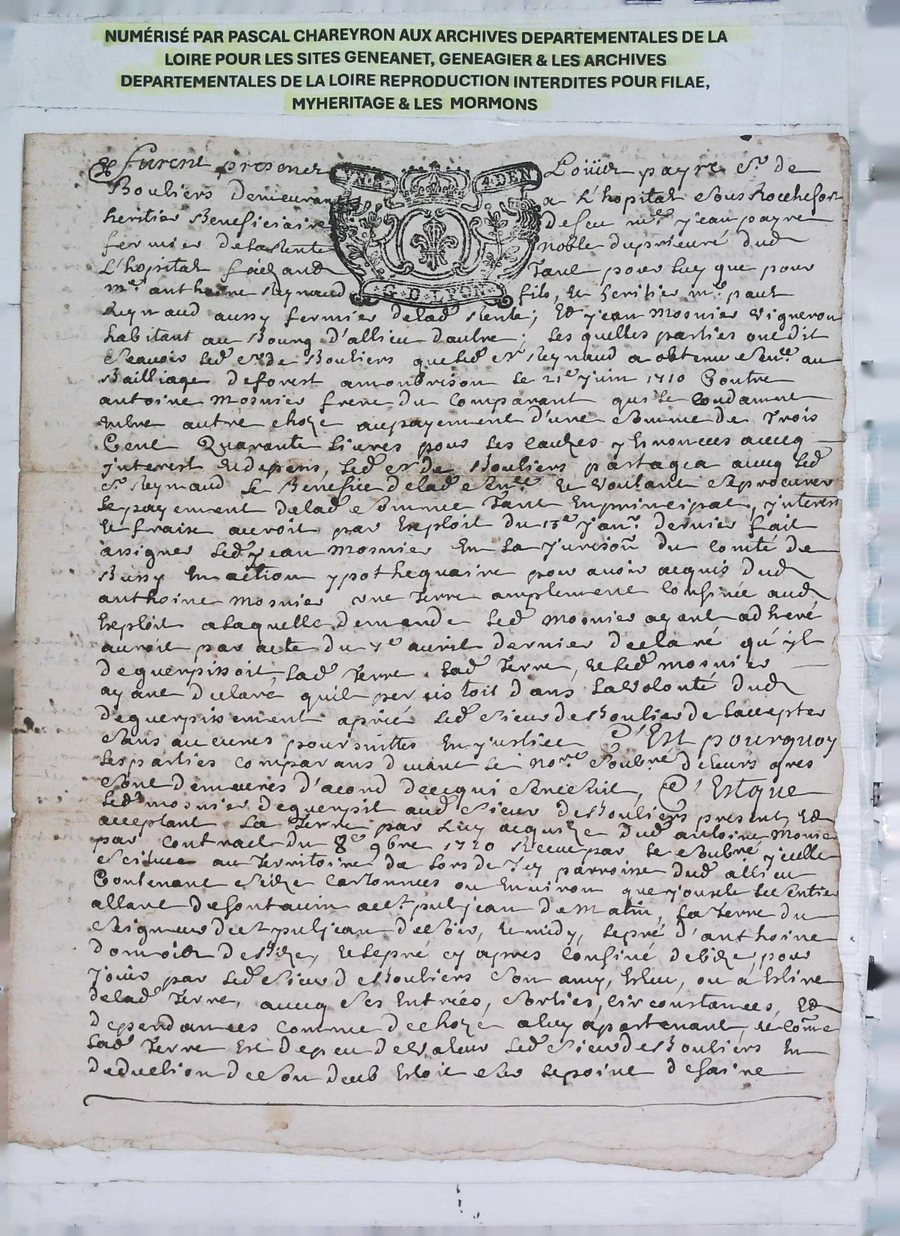 NUMÉRISÉ PAR PASCAL CHAREYRON AUX ARCHIVES DEPARTEMENTALES DE LA
LOIRE POUR LES SITES GENEANET, GENEAGIER & LES ARCHIVES
DEPARTEMENTALES DE LA LOIRE REPRODUCTION INTERDITES POUR FILAE,
MYHERITAGE & LES MORMONS
furent presents Loüis payre Sr. de
4 DEN
Bouliers demeurant a L'hopital sous Rochefort
heritier Beneficiaire de feu mre. jean payre
fermier de la Rente noble du prieuré dud
L'hopital faisand Tant pour luy que pour
mr. anthoine Reynaud fils, Et heritier mr. paul
G. D. LYON
Reynaud aussy fermier de lad. Rente; Et jean Mosnier Vigneron
habitant au Bourg d'allieu d'autre; Les quelles parties ont dit
Sçauoir led. Sr. de Bouliers que led. Sr. Reynaud a obtenu Snce. au
Bailliage de forest a monbrison le 21e. juin 1710 Contre
antoine Mosnier frere du Comparant qui le Condamne
entre autre choze au payement d'une Somme de Trois
Cent Quarante Liures pour les causes y Enoncées aueq
jnterest Et depens, led. Sr. de Bouliers partagea aueq led.
Sr. Reynaud le Benefice de lad. Snce. Et voulant se procurer
le payement de lad. Somme Tant En principal, jnterest
Et fraix auroit par Exploit du janr. dernier fait
assigner led. jean Mosnier En la jurison. du Comté de
Bussy En action ypothequaire pour auoir acquis dud
anthoine Mosnier vne Terre amplement Confinée aud
Exploit a laquelle demande led. Mosnier ayant adheré
auroit par acte du 7e auril dernier declaré qu'il
deguerpissoit, lad. Terre, Et led. mosnier
ayant declaré quil persistoit dans la volonté dud
deguerpissement apriée led. Sieur de Boulier de l'accepter
Sans aucunes poursuittes En justice C'Est pourquoy
les parties comparans deuant le nore. Soubne. de leurs grés
Sont demeurées d'acord de ce qui Sensuit, C'Est que
led. mosnier deguerpit aud. Sieur de Bouliers present, Et
acceptant La Terre par luy acquize dud. antoine Monier
par Contract du 8e. 9bre 1720 Receu par le Soubné. jcelle
Scituée au Territoire de parroisse dud. allieu
Contenant Seize Cartonnées ou Enuiron que jouxte Le Sentier
allant de fontauin a de Matin, La Terre du
Seigneur de de Soir, Et midy, le pré d'anthoine
de Bize, Et le pré cy apres Confiné de bize, pour
Jouir par led. Sieur de Bouliers Son amy, Esleu, ou a Eslire
de lad. Terre, aueq Ses Entrées, Sorties, Circonstances, Et
dependances comme de choze a luy apartenant, Et Come
lad. Terre Est de peu de valeur led. Sieur de Bouliers En
deduction de Son deub Estoit Sur le point de faire